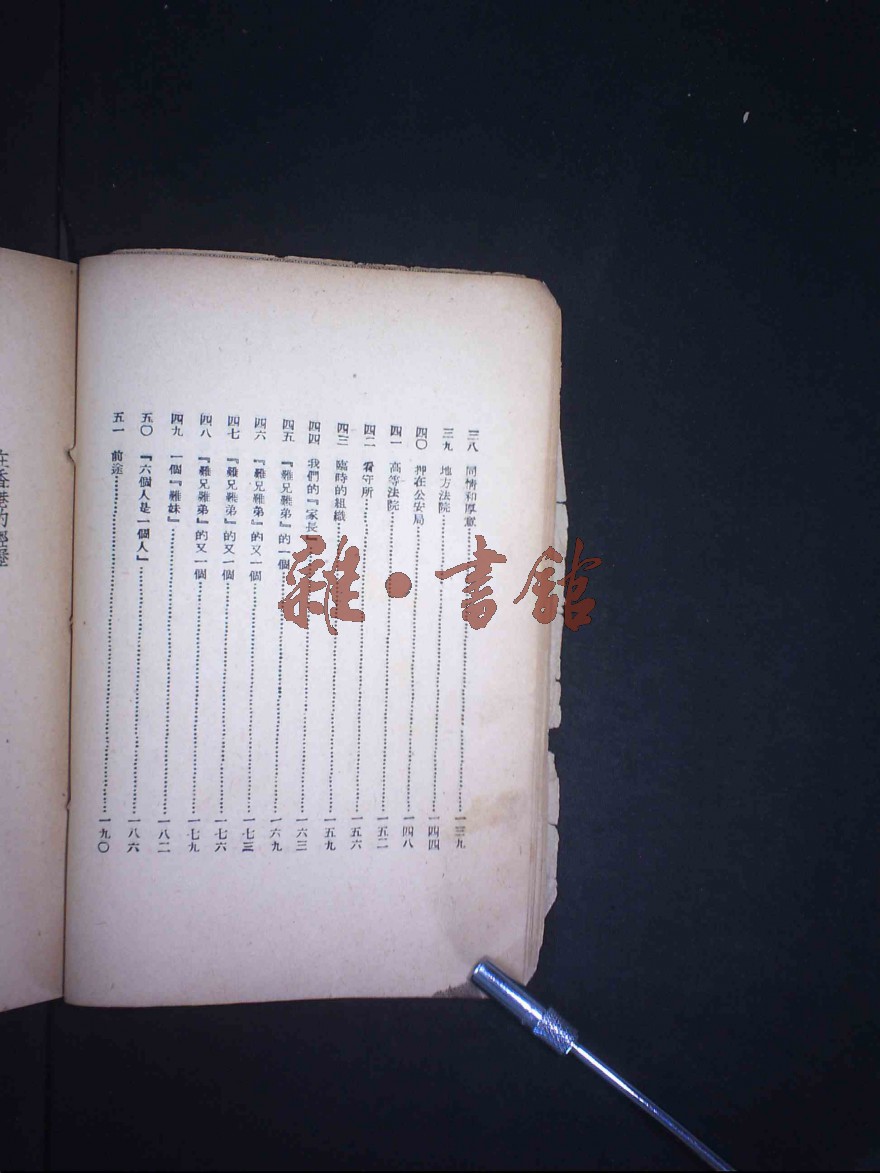 三八 同情和厚意 一三九
三九 地方法院 一四四
四〇 押在公安局 一四八
四一 高等法院 一五二
四二 看守所 一五六
四三 臨時的組織 一五九
四四 我們的『家長』 一六三
四五 『難兄難弟』的一個 一六九
四六 『難兄難弟』的又一個 一七三
四七 『難兄難弟』的又一個 一七六
四八 『難兄難弟』的又一個 一七九
四九 一個『難妹』 一八二
五〇 『六個人是一個人』 一八六
五一 前途 一九〇
在香港的經歷
雜·書館